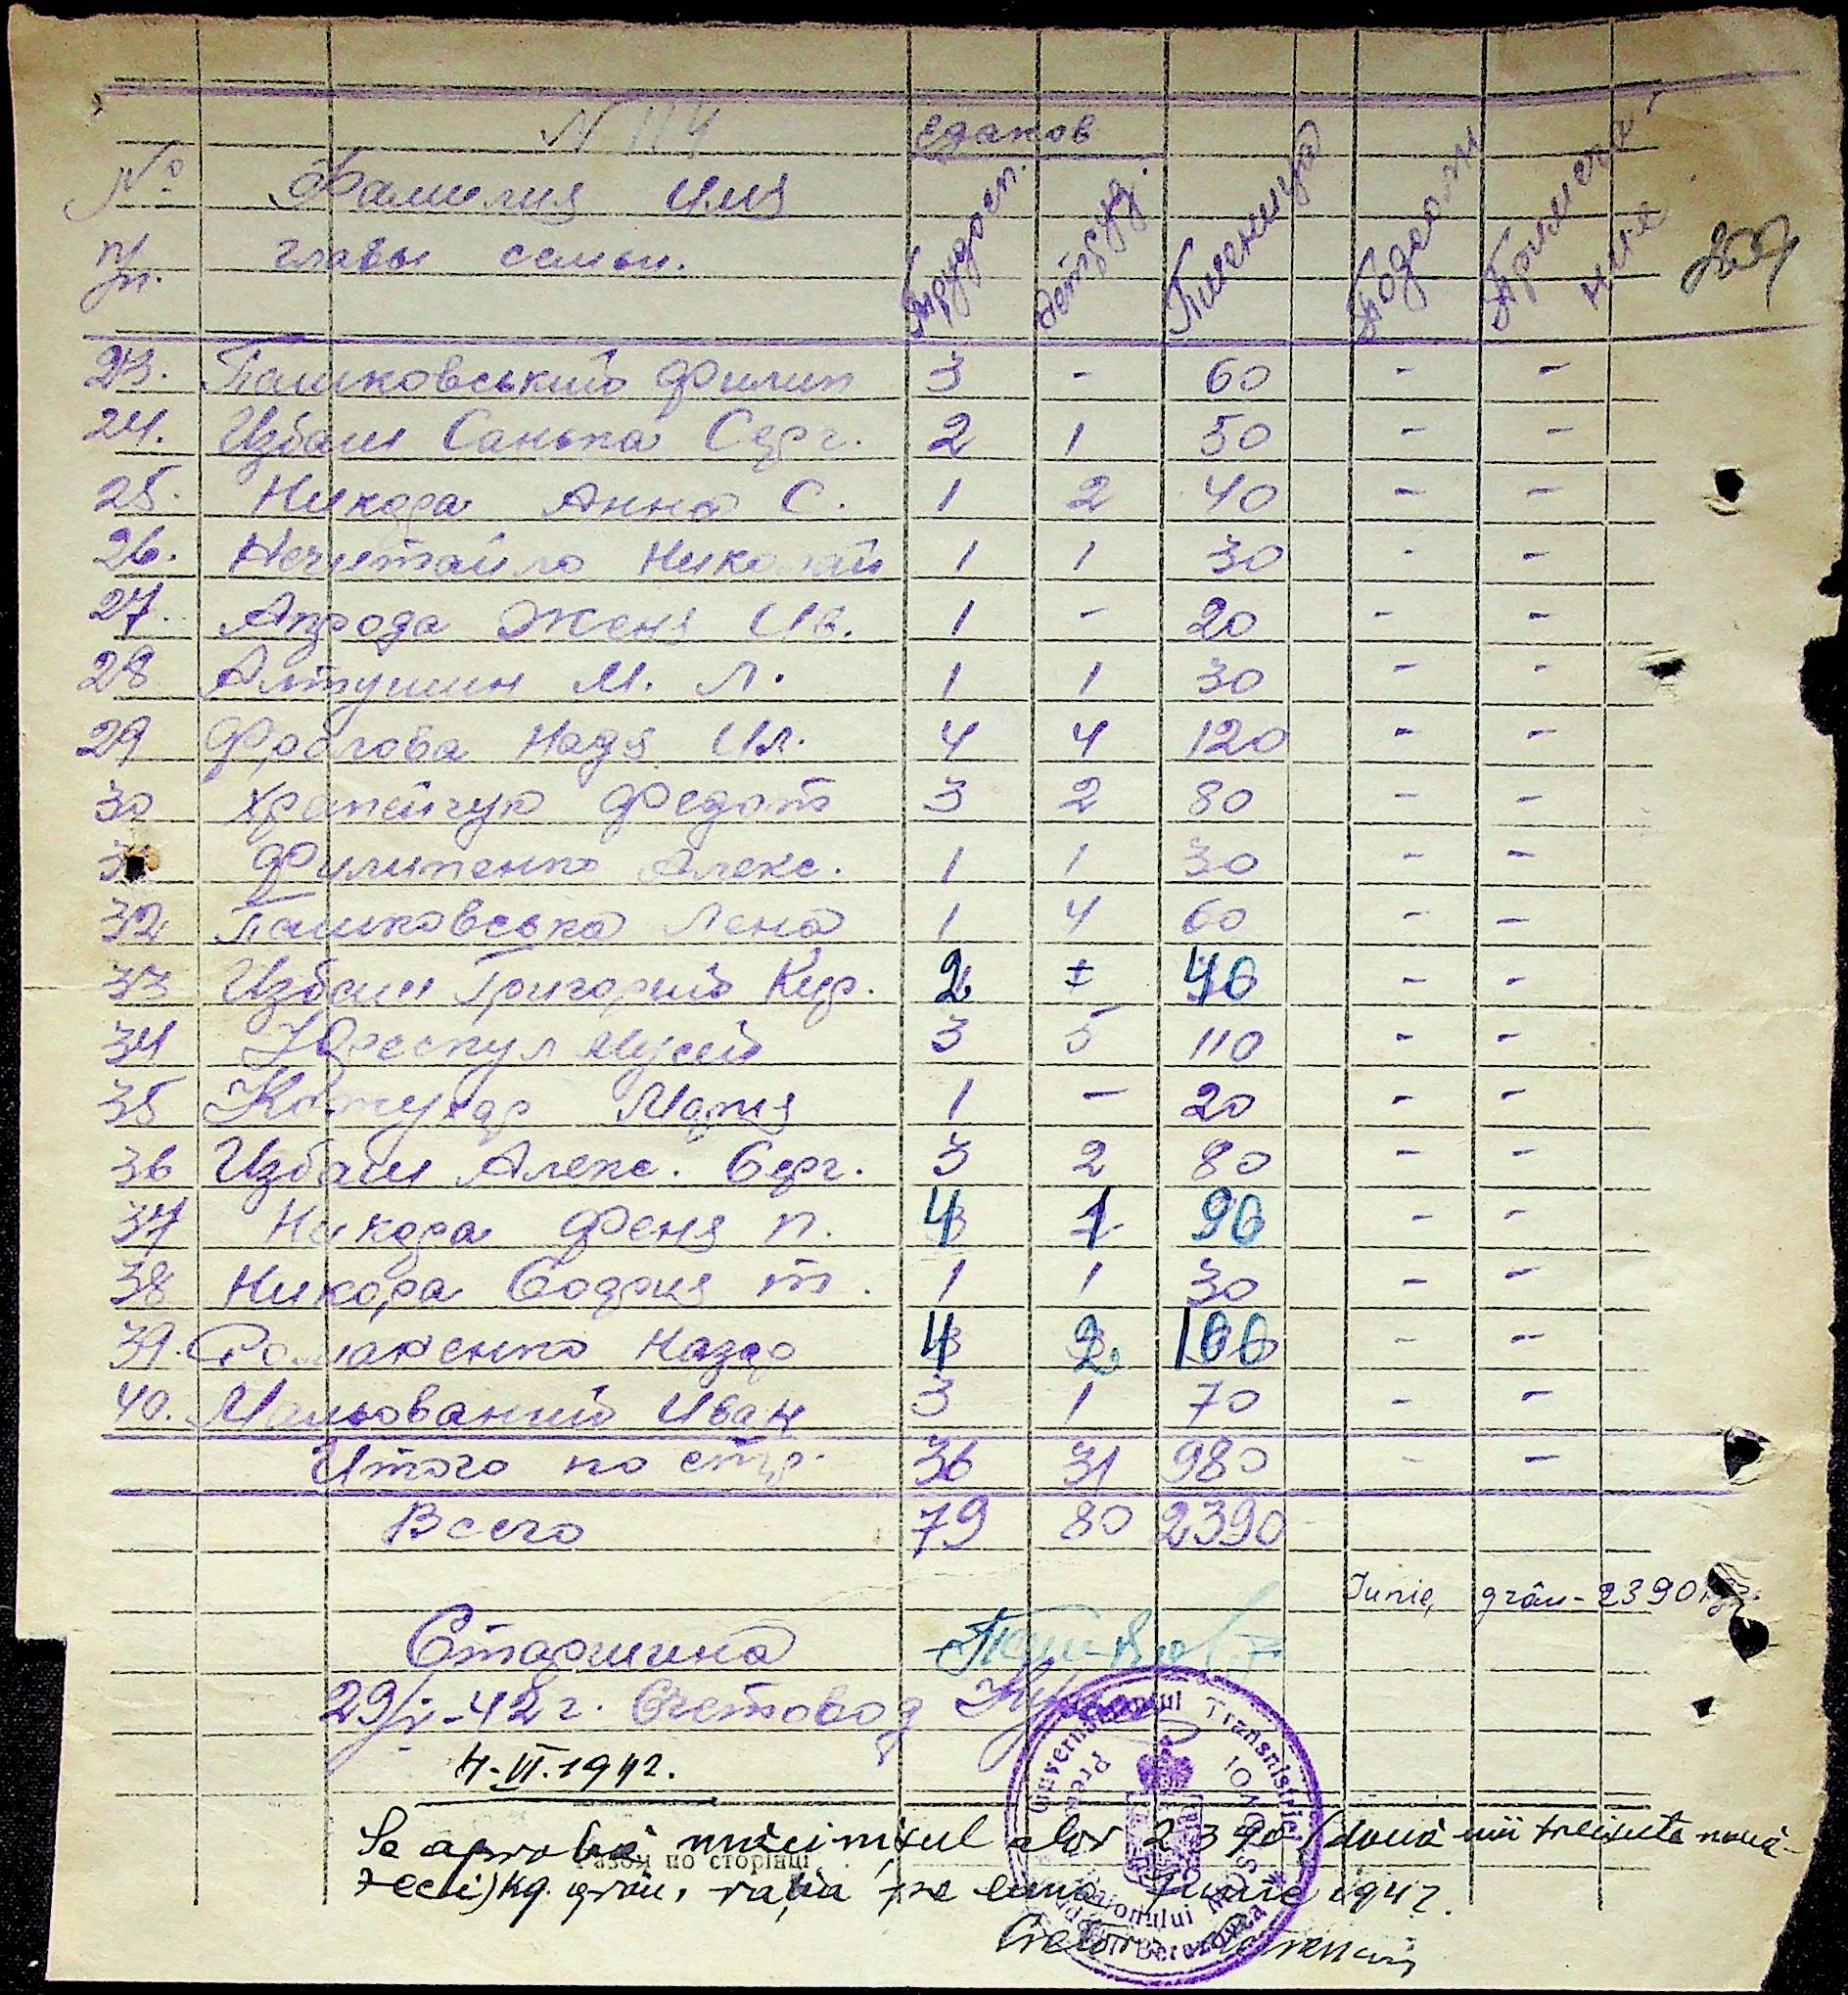 N 114
№ Фамилия Имя едоков
п/п. главы семьи. трудосп. нетруд. Пшеница Примеча ние 209
23. Пашковський Филип 3 - 60 - -
24. Избаш Санька Серг. 2 1 50 - -
25. Никора Анна С. 1 2 40 - -
26. Нечитайло Николай 1 1 30 - -
27. Апрода Женя Ив. 1 - 20 - -
28 Алтушин М. Л. 1 1 30 - -
29 Фролова Надя Ил. 4 4 120 - -
30 Федот 3 2 80 - -
Филипенко Алекс. 1 1 30 - -
32 Пашковська Лена 1 4 60 - -
33 Избаш Григорий Кир. 2 40 - -
34 3 5 110 - -
35 Мария 1 - 20 - -
36 Избаш Алекс. Серг. 3 2 80 - -
37 Никора Феня П. 4 1 90 - -
38 Никора София Т. 1 1 30 - -
39. Романенко Назар 4 2 100 - -
40. Мальований Иван 3 1 70 - -
Итого по стр. 36 31 980 - -
Всего 79 80 2390
Iunie, grâu - 2390 kg.
Старшина
29/V-42 г. Счетовод
4-VI.1942.
Se aprobă alor 2390 (două mii treisute nouă-
Разом по сторінці
zeci) kg. grâu, rația pe luna Iunie 1942.
Pretor
Guvernământul Transnistriei
Raionului MOSTOVOI
Berezovca